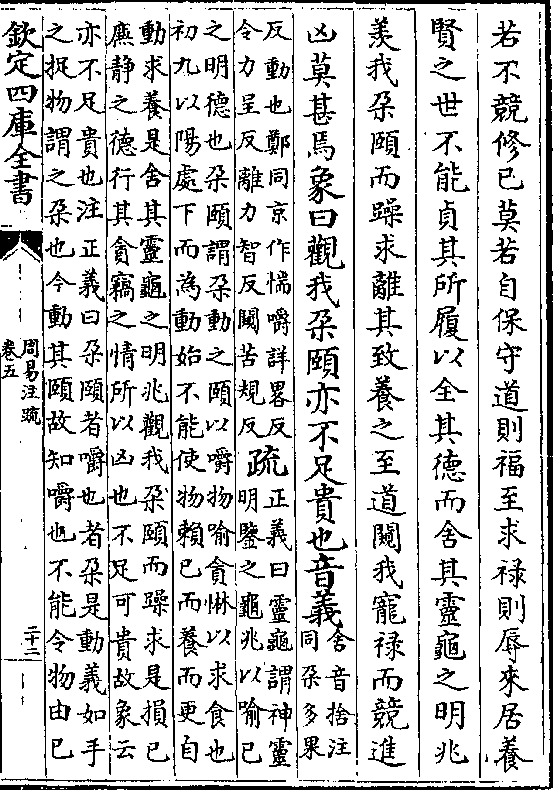 若不競修己莫若自保守道則福至求祿則辱來居養
賢之世不能貞其所履以全其德而舍其靈龜之明兆
羨我朵頤而躁求離其致養之至道闚我寵祿而競進
凶莫甚焉象曰觀我朵頤亦不足貴也音義舍音捨注
同朵多果
反動也鄭同京作惴嚼詳畧反
令力呈反離力智反闚苦規反
疏正義曰靈龜謂神靈
明鑒之龜兆以喻己
之明德也朵頤謂朵動之頤以嚼物喻貪惏以求食也
初九以陽處下而為動始不能使物賴己而養而更自
動求養是舍其靈龜之明兆觀我朵頤而躁求是損己
廉静之德行其貪竊之情所以凶也不足可貴故象云
亦不足貴也注正義曰朵頤者嚼也者朵是動義如手
之捉物謂之朵也今動其頤故知嚼也不能令物由己
欽定四庫全書
周易注疏
卷五
二十二